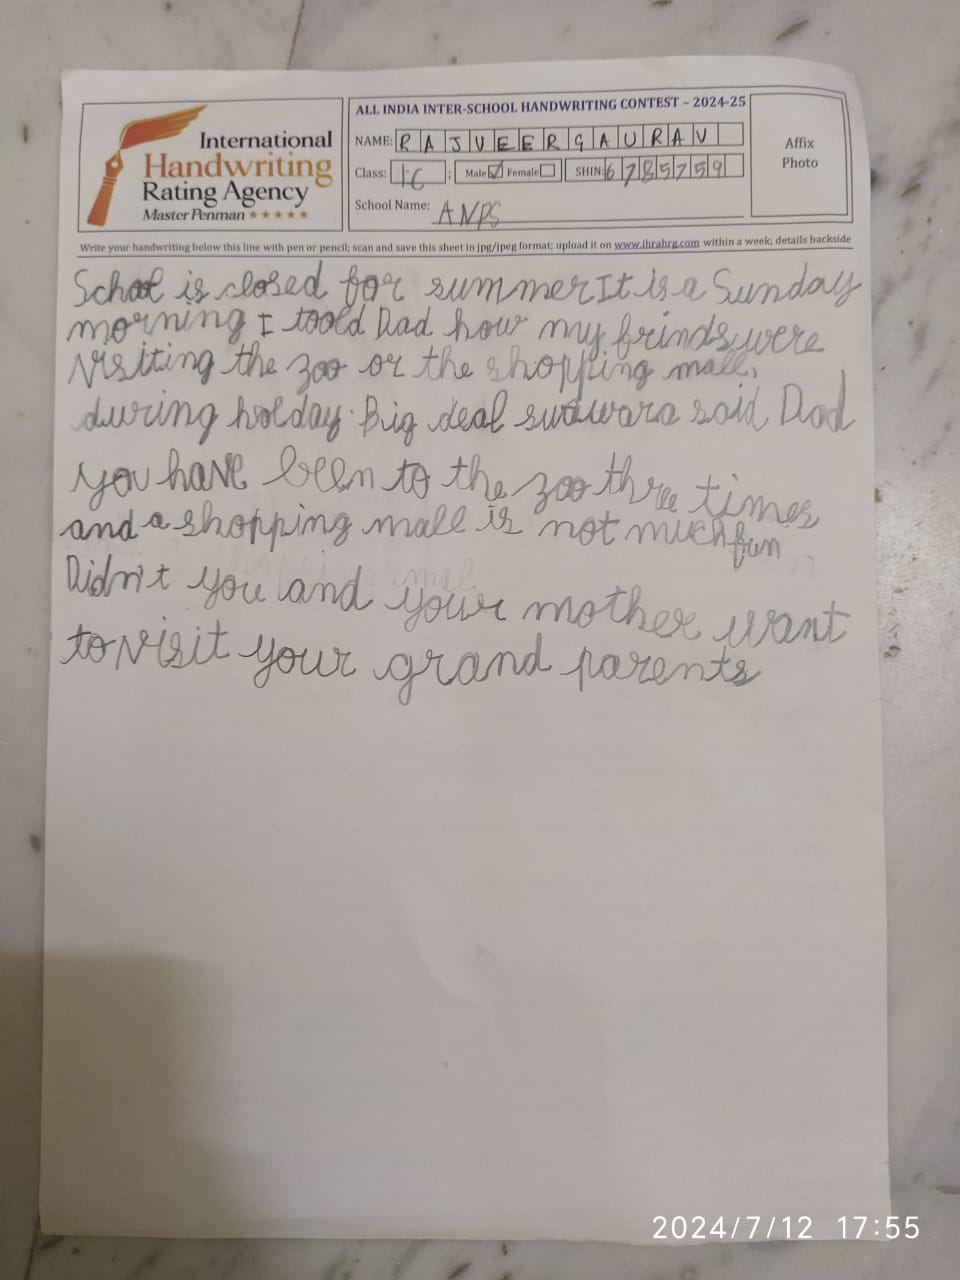 International
Handwriting
Rating Agency
Master Penman ★★★★★
ALL INDIA INTER-SCHOOL HANDWRITING CONTEST – 2024-25
NAME: RAJVEER GAURAV
Class: 1C ; Male ☑ Female ☐ SHIN: 6785759
School Name: ANPS
Affix
Photo
Write your handwriting below this line with pen or pencil; scan and save this sheet in jpg/jpeg format; upload it on www.ihrahrg.com within a week; details backside
School is closed for summer It is a Sunday
morning I toold Dad how my frinds were
visiting the zoo or the shopping mall,
during holday. Big deal said Dad
you have been to the zoo three times
and a shopping mall is not much fun
Didn't you and your mother want
to visit your grand parents
2024/7/12 17:55